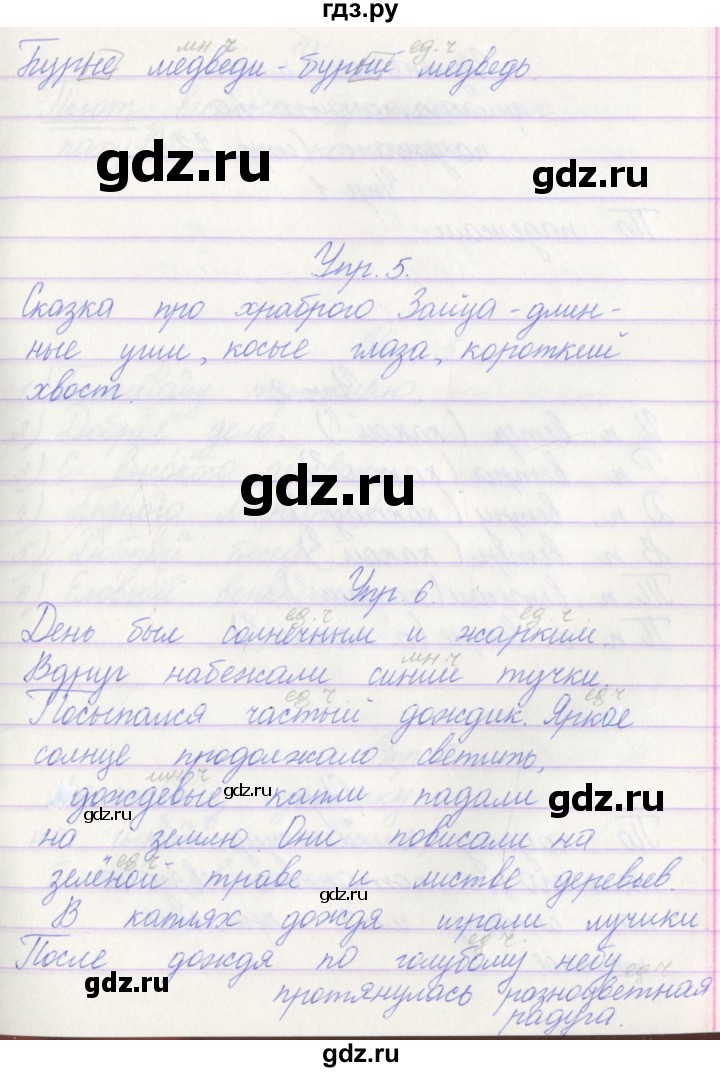 гдз.ру
мн.ч ед.ч
Бурые медведи - бурый медведь.
gdz.ru
gdz.ru
Упр. 5.
Сказка про храброго Зайца - длин-
ные уши, косые глаза, короткий
хвост.
gdz.ru
Упр. 6.
ед.ч ед.ч
День был солнечным и жарким.
мн.ч
Вдруг набежали синии тучки.
ед.ч ед.ч
Посыпался частый дождик. Яркое
солнце продолжало светить,
мн.ч
дождевые капли падали
gdz.ru
gdz.ru
gdz.ru
на землю. Они повисали на
ед.ч
зелёной траве и листве деревьев.
gdz.ru
В каплях дождя играли лучики
ед.ч.
После дождя по голубому небу
ед.ч
протянулась разноцветная
радуга.
gdz.ru
gdz.ru
gdz.ru